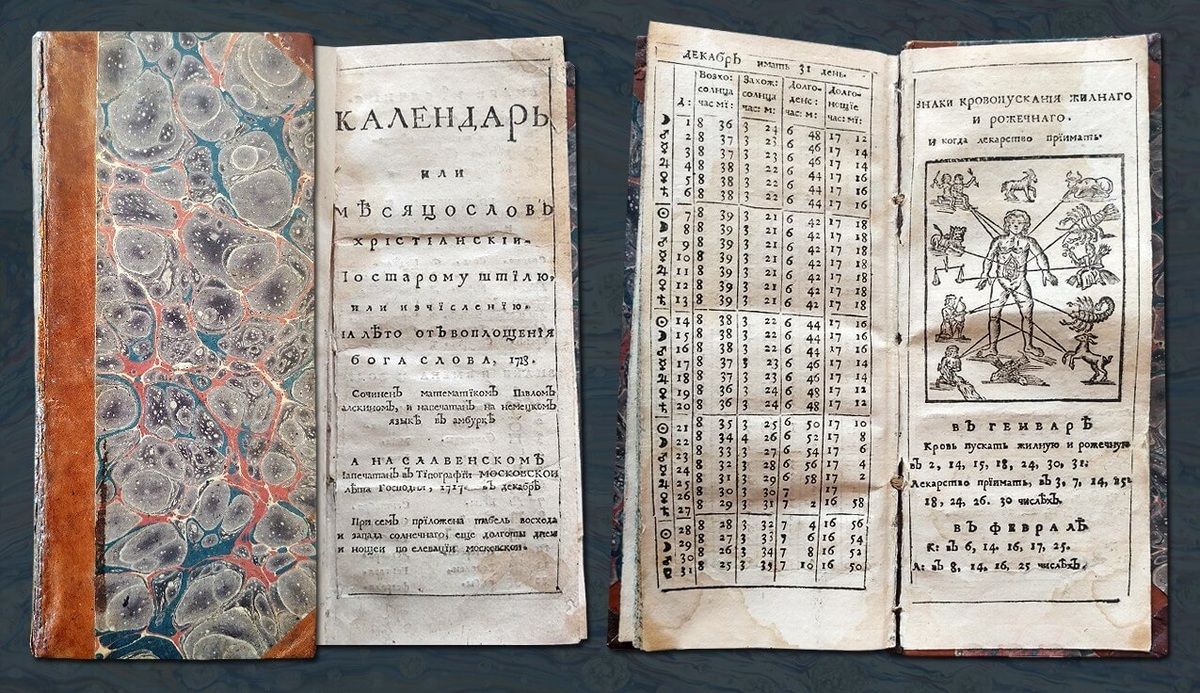 КАЛЕНДАРЬ
или
МѢСЯЦОСЛОВЪ
ХРІСТІАНСКІИ.
По старому штілю,
или изчісленію.
НА ЛѢТО ОТЪ ВОПЛОЩЕНІЯ
БОГА СЛОВА, 1718.
Сочиненъ математікомъ Павломъ
алскиномъ, и напечатанъ на немецкомъ
языкѣ въ амбуркѣ
А НА СЛАВЕНСКОМЪ
Напечатанъ въ Тіпографіи МОСКОВСКОИ
лѣта Господня, 1717. въ декабрѣ
При семъ прїложена табель восхода
и запада солнечнаго; еще долготы днеи
и нощеи по елевацїи московскои.
ДЕКАБРЬ имать 31 день.
Д: Возхо: солнца час: мї: Захож: солнца час: м: Долго- денс: час: м: Долго- нощіе час: мї:
☽ 1 8 36 3 24 6 48 17 12
♂ 2 8 37 3 23 6 46 17 14
☿ 3 8 37 3 23 6 46 17 14
♃ 4 8 38 3 22 6 44 17 16
♀ 5 8 38 3 22 6 44 17 16
♄ 6 8 38 3 22 6 44 17 16
☉ 7 8 39 3 21 6 42 17 18
☽ 8 8 39 3 21 6 42 17 18
♂ 9 8 39 3 21 6 42 17 18
☿ 10 8 39 3 21 6 42 17 18
♃ 11 8 39 3 21 6 42 17 18
♀ 12 8 39 3 21 6 42 17 18
♄ 13 8 39 3 21 6 42 17 18
☉ 14 8 38 3 22 6 44 17 16
☽ 15 8 38 3 22 6 44 17 16
♂ 16 8 38 3 22 6 44 17 16
☿ 17 8 37 3 23 6 46 17 14
♃ 18 8 37 3 23 6 46 17 14
♀ 19 8 36 3 24 6 48 17 12
♄ 20 8 36 3 24 6 48 17 12
☉ 21 8 35 3 25 6 50 17 10
☽ 22 8 34 4 26 6 52 17 8
♂ 23 8 33 3 27 6 54 17 6
☿ 24 8 32 3 28 6 56 17 4
♃ 25 8 31 3 29 6 58 17 2
♀ 26 8 30 3 30 7 17
♄ 27 8 29 3 31 7 2 16 58
☉ 28 8 28 3 32 7 4 16 56
☽ 29 8 27 3 33 7 6 16 54
♂ 30 8 26 3 34 7 8 16 52
☿ 31 8 25 3 35 7 10 16 50
ЗНАКИ КРОВОПУСКАНІЯ ЖИЛНАГО
И РОЖЕЧНАГО.
И когда лекарство прїимать.
ВЪ ГЕНВАРѢ
Кровь пускать жилную и рожечную
въ 2, 14, 15, 18, 24, 30, 31.
Лекарство прїимать, въ 3, 7, 14, 15,
18, 24, 26. 30 числѣхъ.
ВЪ ФЕВРАЛѢ
К: въ 6, 14. 16, 17, 25.
Л: въ 8, 14, 16, 25 числѣхъ.